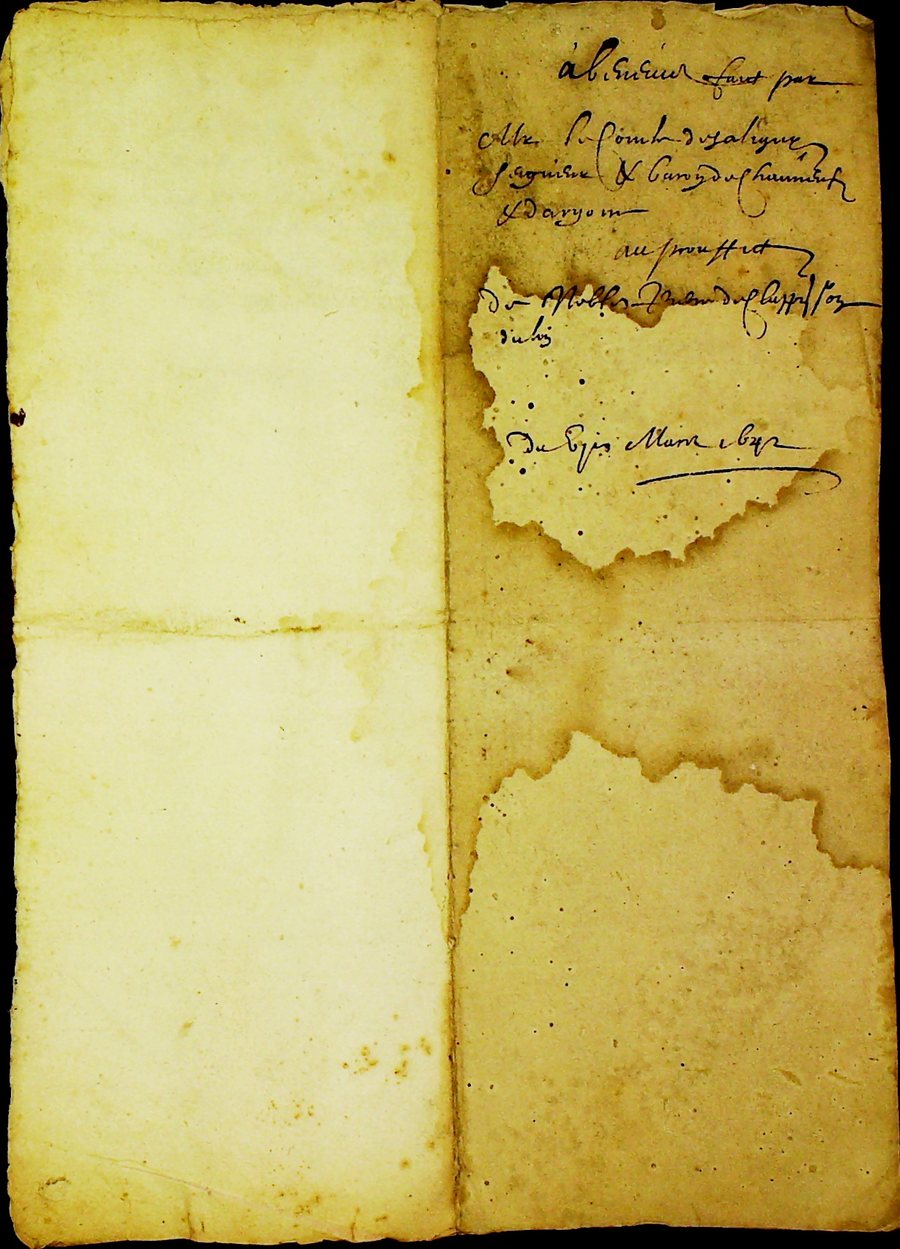 abenevis faict par
Mr le Comte de saligny
seigneur & baron de Chaumeulx
& dargom
au prouffict
de Noble de Clappisson
du
Du Mars 1642